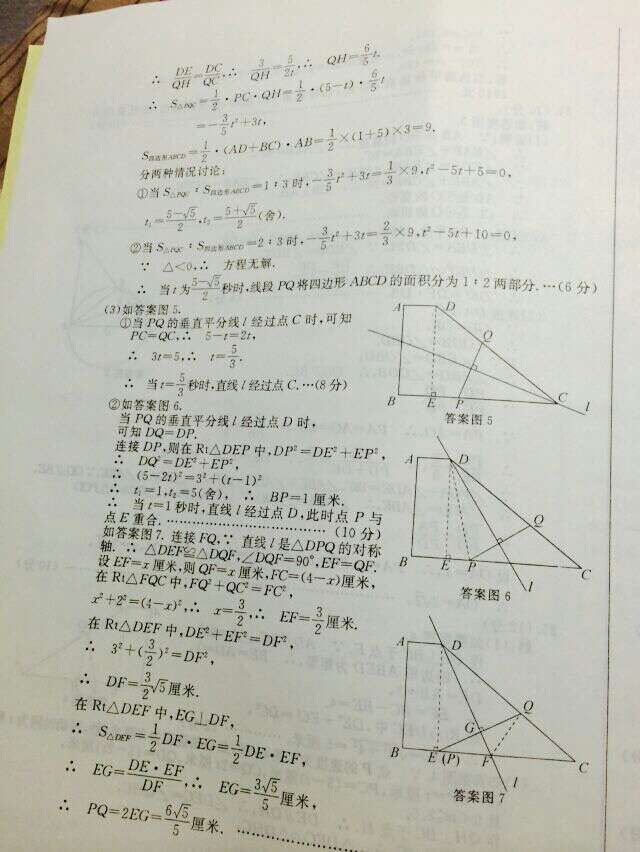 ∴ DE/QH=DC/QC,∴ 3/QH=5/2t,∴ QH=6/5t.
∴ S△PQC=1/2·PC·QH=1/2·(5-t)·6/5t
=-3/5t²+3t,
S四边形ABCD=1/2·(AD+BC)·AB=1/2×(1+5)×3=9.
分两种情况讨论:
①当S△PQC∶S四边形ABCD=1∶3时,-3/5t²+3t=1/3×9,t²-5t+5=0,
t₁=(5-√5)/2,t₂=(5+√5)/2(舍).
②当S△PQC∶S四边形ABCD=2∶3时,-3/5t²+3t=2/3×9,t²-5t+10=0,
∵ △<0,∴ 方程无解.
∴ 当t为(5-√5)/2秒时,线段PQ将四边形ABCD的面积分为1∶2两部分.…(6分)
(3)如答案图5.
①当PQ的垂直平分线l经过点C时,可知
PC=QC,∴ 5-t=2t,
∴ 3t=5,∴ t=5/3.
∴ 当t=5/3秒时,直线l经过点C.…(8分)
A
D
Q
B
E
P
C
l
答案图5
②如答案图6.
当PQ的垂直平分线l经过点D时,
可知DQ=DP.
连接DP,则在Rt△DEP中,DP²=DE²+EP²,
∴ DQ²=DE²+EP²,
∴ (5-2t)²=3²+(t-1)²
∴ t₁=1,t₂=5(舍), ∴ BP=1厘米.
∴ 当t=1秒时,直线l经过点D,此时点P与
点E重合.……………………………(10分)
A
D
Q
B
E
P
C
l
答案图6
如答案图7. 连接FQ,∵ 直线l是△DPQ的对称
轴. ∴ △DEF≌△DQF,∠DQF=90°,EF=QF.
设EF=x厘米,则QF=x厘米,FC=(4-x)厘米,
在Rt△FQC中,FQ²+QC²=FC²,
x²+2²=(4-x)²,∴ x=3/2,∴ EF=3/2厘米.
在Rt△DEF中,DE²+EF²=DF²,
∴ 3²+(3/2)²=DF²,
∴ DF=3/2√5厘米.
在Rt△DEF中,EG⊥DF,
∴ S△DEF=1/2DF·EG=1/2DE·EF,
∴ EG=DE·EF/DF,∴ EG=3√5/5厘米,
∴ PQ=2EG=6√5/5厘米. ……………
A
D
Q
G
B
E(P)
F
C
l
答案图7